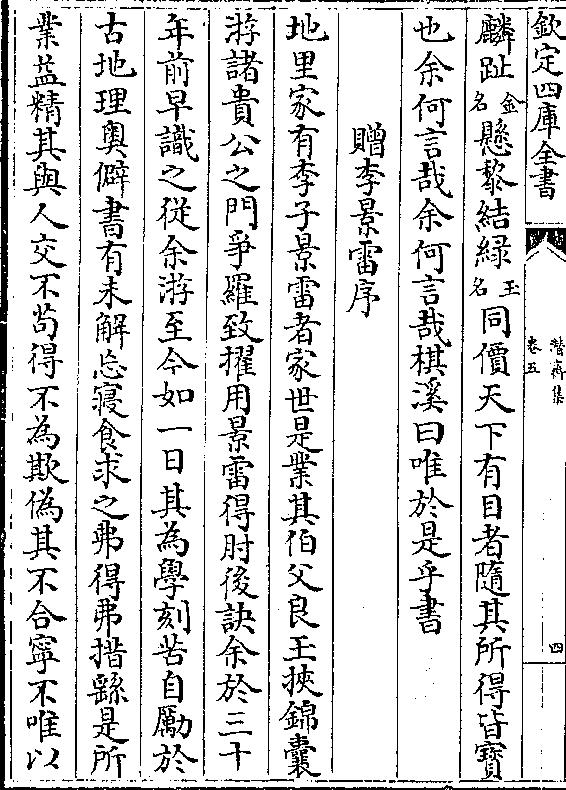 欽定四庫全書
卷五
四
麟趾金名懸黎結綠玉名同價天下有目者隨其所得皆寶
也余何言哉余何言哉棋溪曰唯於是乎書
贈李景雷序
地里家有李子景雷者家世是業其伯父良玉挾錦囊
游諸貴公之門爭羅致擢用景雷得肘後訣余於三十
年前早識之從余游至今如一日其為學刻苦自勵於
古地理奧僻書有未解忘寢食求之弗得弗措繇是所
業益精其與人交不苟得不為欺偽其不合寧不唯以